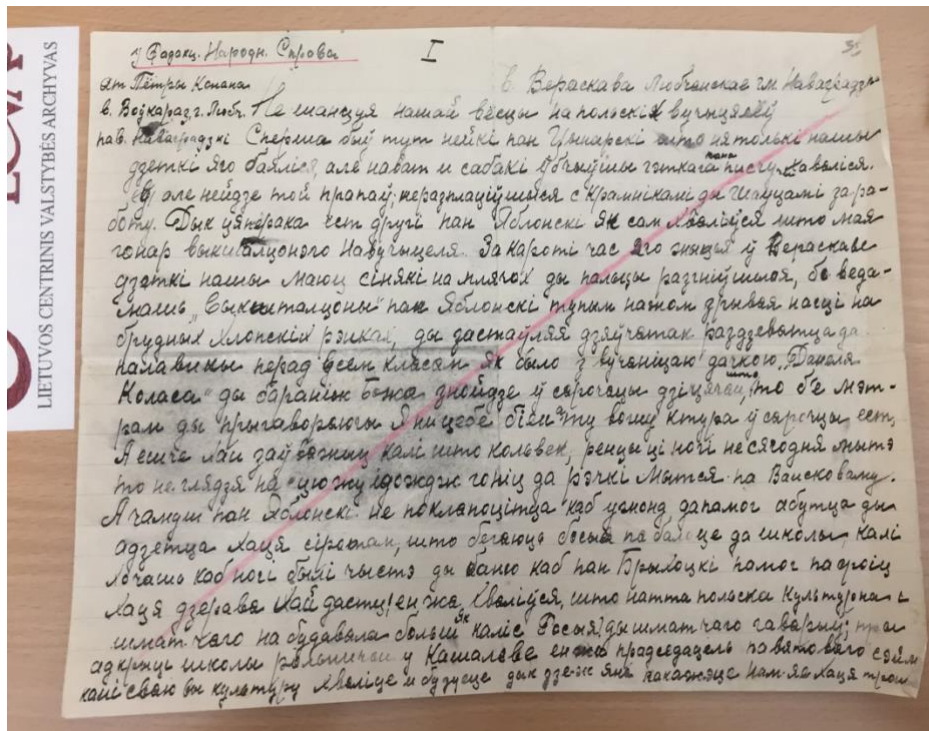 LIETUVOS CENTRINIS VALSTYBĖS ARCHYVAS
LCVA
I
у Рэдакц. Народн. Справа
ат Пётры Копана
в. Вераскава Любчанскае гм. Наваградзк
Не шанцуя нашай вёсцы на польскіх вучыцялёў
пав. Наваградзкі Сперша быў тут нейкі пан Цынарскі што нятолькі нашы
дзеткі яго баяліся, але нават и сабакі ўбачыўшы гэткага пана
але нейдзе той прапаў, неразплаціўшыся с крамнікамі ды шаўцамі за ра-
боту. Дык цяперака ест другі пан Яблонскі як сам хваліўся што мая
гонар выкшталцоного навучыцеля. За кароткі час яго жыцця ў Вераскаве
дзяткі нашы маюц сінякі на плячох ды пальцы разгніўшыя, бо веда-
маш „Выкшталцоны" пан Яблонскі тупым нажом зрывая насці на
брудных хлопскіх рэнках, ды дастаўляя дзяўчатак раздзеватца да
палавины перад всем клясам як было з вучаніцаю дачкою „Даніеля
Коласа" ды бараніж Божа знойдзе ў сарочцы дзіцячай што
рам ды прыгаворваючы Я ни цебе бію ту вошу ктура ў сарочцы ест,
А ешче калі што кольвек, ренцы ці ногі не сягодня мытэ
то не глядзя на сцюжу і дождж гоніц да рэчкі мытся па Вайсковаму.
А чамуш пан Яблонскі не поклапоцітца каб угмонд дапамог абутца ды
адзетца хаця сіротам, што бегаюць босыя па балоце да школы, калі
хочаш каб ногі былі чыстэ ды баню каб пан Брыхоцкі памог пастроіц
хаця дзерава хай дасць! ен жа хваліўся, што натта польска культурна і
шмат чаго на будавала больш як каліс Росыя! ды шмат чаго гаварыў; при
адкрыц школы рольничай у Кашалеве ен жа прадседацель павятовага сейм
калі сваю вы культуру хваліце и будуеце дык дзе-ж яна пакажэце нам яе хаця трош